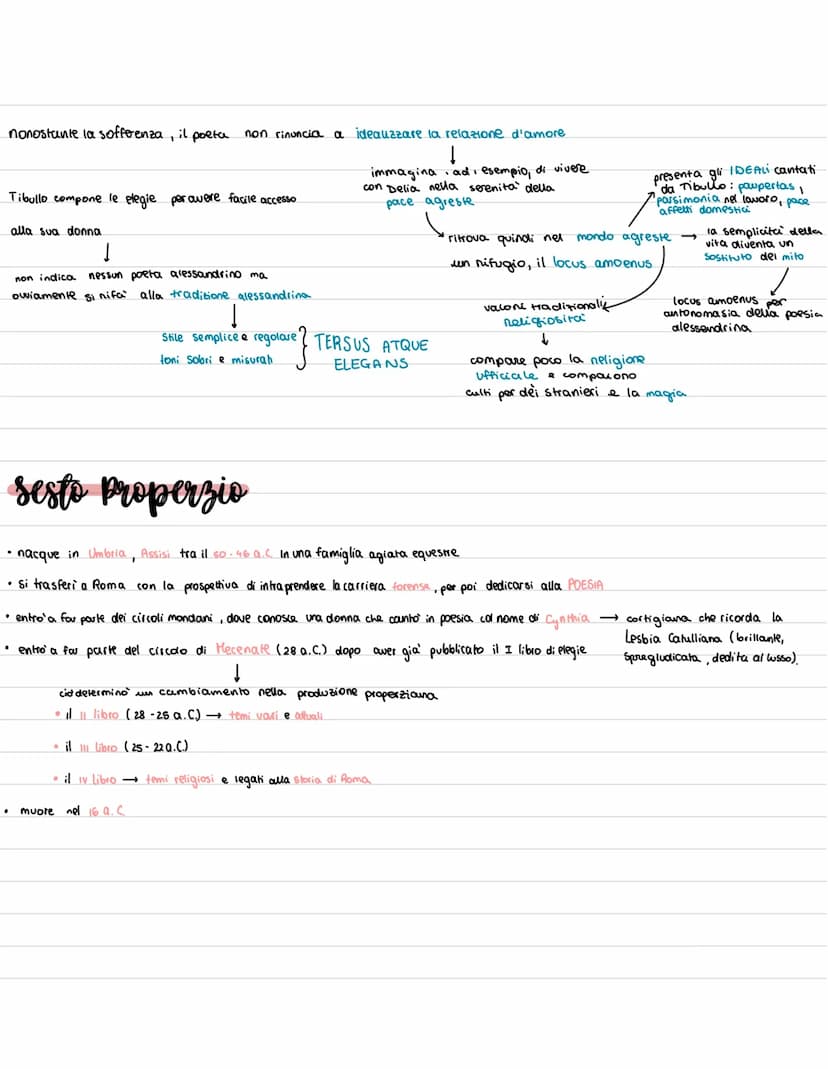 nonostante la sofferenza, il poeta non rinuncia a idealizzare la relazione d'amore
immagina, ad esempio, di vivere
con Delia nella serenità della
pace agreste
presenta gli IDEALI cantati
da Tibullo: paupertas,
parsimonia nel lavoro, pace
affetti domestici
Tibullo compone le elegie per avere facile accesso
alla sua donna
ritrova quindi nel mondo agreste → la semplicità della
vita diventa un
sostituto del mito
un rifugio, il locus amoenus
non indica nessun poeta alessandrino ma
ovviamente si rifa' alla traditione alessandrina
valori tradizionali
religiosità
locus amoenus per
antonomasia della poesia
alessandrina
Stile semplice e regolare
toni sobri e misurati
TERSUS ATQUE
ELEGANS
compare poco la religione
ufficiale e compaiono
culti per dèi stranieri e la magia
Sesto Properzio
• nacque in Umbria, Assisi tra il 50-46 a.C. in una famiglia agiata equestre
• si trasferì a Roma con la prospettiva di intraprendere la carriera forense, per poi dedicarsi alla POESIA
• entro' a far parte dei circoli mondani, dove conosce una donna che canto' in poesia col nome di Cynthia → cortigiana che ricorda la
Lesbia Catulliana (brillante,
spregiudicata, dedita al lusso).
• entro' a far parte del circolo di Mecenate (28 a.C.) dopo aver gia' pubblicato il I libro di elegie
ciò determinò un cambiamento nella produzione properziana
• il II libro (28-25 a.C.) → temi vari e attuali
• il III libro (25-22 a.C.)
• il IV libro → temi religiosi e legati alla storia di Roma
• muore nel 16 a.C